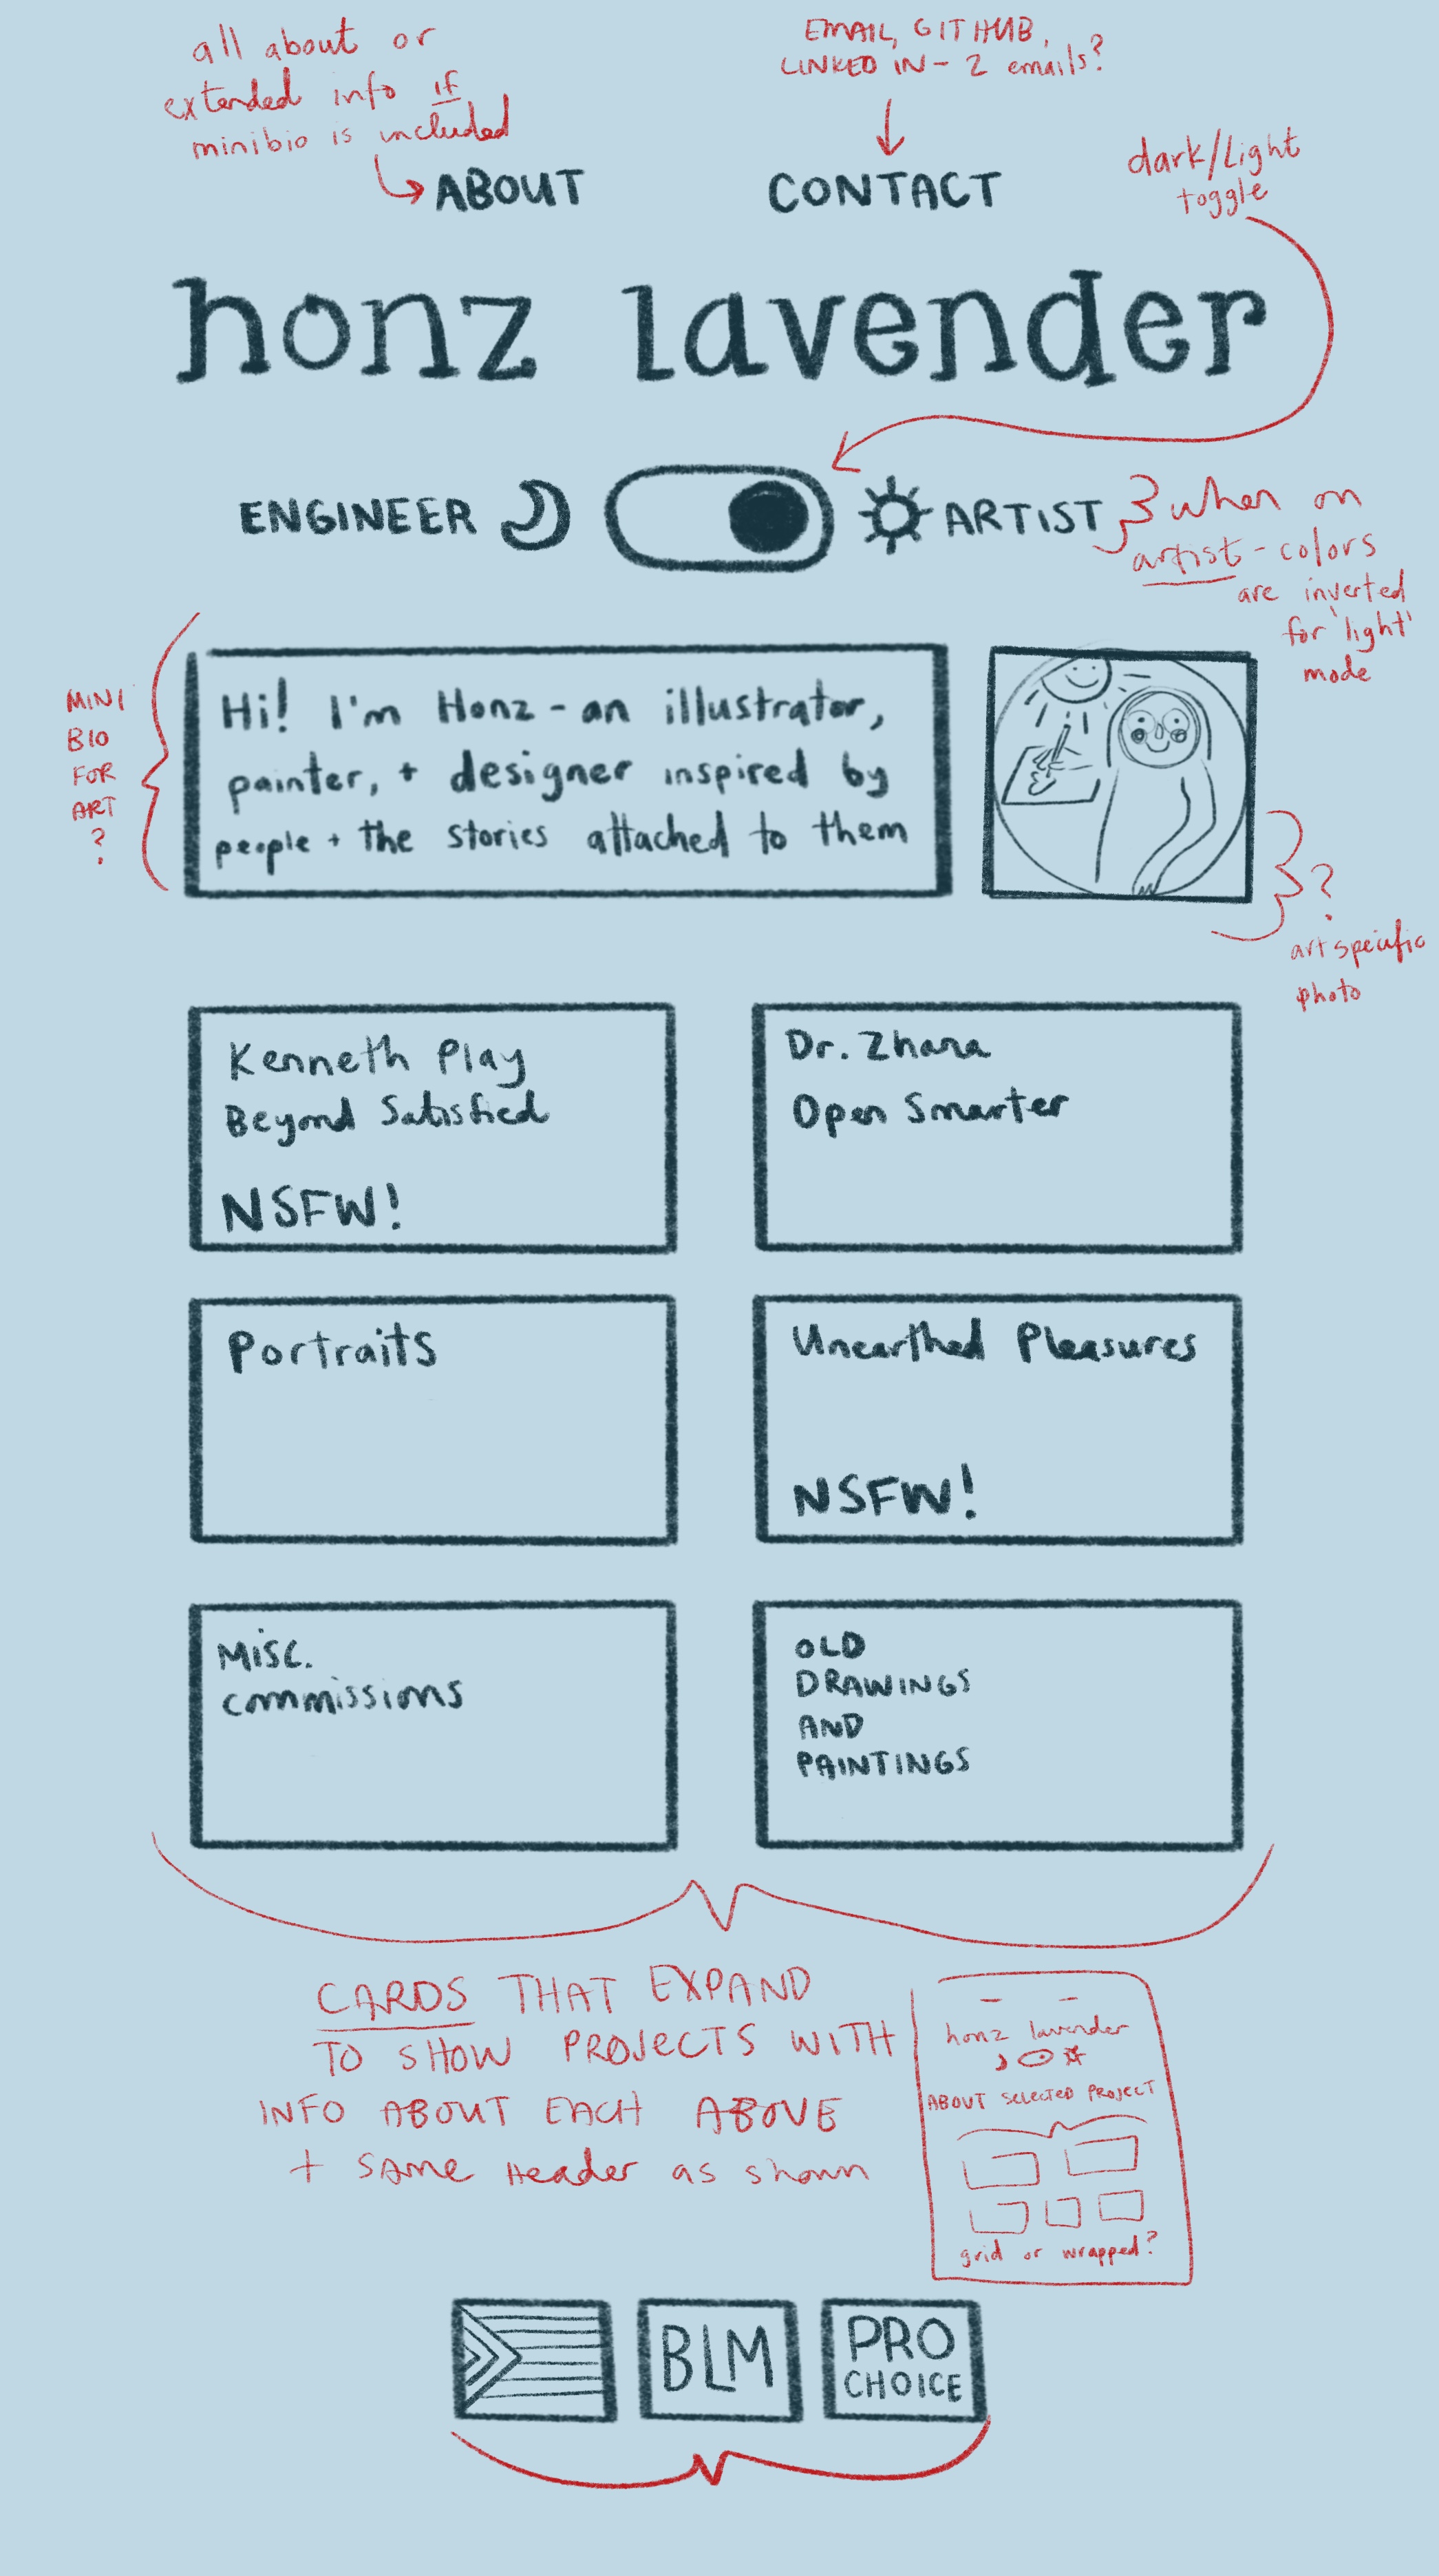 all about or
extended info if
minibio is included
EMAIL, GITHUB,
LINKED IN - 2 emails?
dark/light
toggle
ABOUT
CONTACT
honz lavender
ENGINEER
ARTIST
when on
artist - colors
are inverted
for 'light'
mode
MINI
BIO
FOR
ART
?
Hi! I'm Honz - an illustrator,
painter, + designer inspired by
people + the stories attached to them
?
art specific
photo
Kenneth Play
Beyond Satisfied
NSFW!
Dr. Zhana
Open Smarter
Portraits
Unearthed Pleasures
NSFW!
Misc.
commissions
OLD
DRAWINGS
AND
PAINTINGS
CARDS THAT EXPAND
TO SHOW PROJECTS WITH
INFO ABOUT EACH ABOVE
+ SAME HEADER as shown
honz lavender
ABOUT SELECTED PROJECT
grid or wrapped?
BLM
PRO
CHOICE